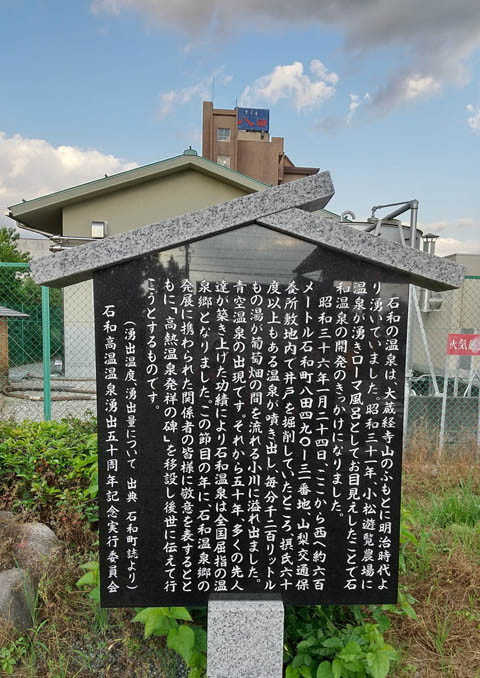 石和の温泉は、大蔵経寺山のふもとに明治時代よ
り湧いていました。昭和三十一年、小松遊覧農場に
温泉が湧きローマ風呂としてお目見えしたことで石
和温泉の開発のきっかけになりました。
昭和三十六年一月二十四日、ここから西へ約六百
メートル石和町八田四九〇ー三一番地、山梨交通保
養所敷地内で井戸を掘削していたところ、摂氏六十
度以上もある温泉が噴き出し、毎分千二百リットル
もの湯が葡萄畑の間を流れる小川に溢れ出ました。
青空温泉の出現です。それから五十年、多くの先人
達が築き上げた功績により石和温泉は全国屈指の温
泉郷となりました。この節目の年に、石和温泉郷の
発展に携わられた関係者の皆様に敬意を表するとと
もに「高熱温泉発祥の碑」を移設し後世に伝えて行
こうとするものです。
（湧出温度、湧出量について 出典 石和町誌より）
石和高温温泉湧出五十周年記念実行委員会
火気厳